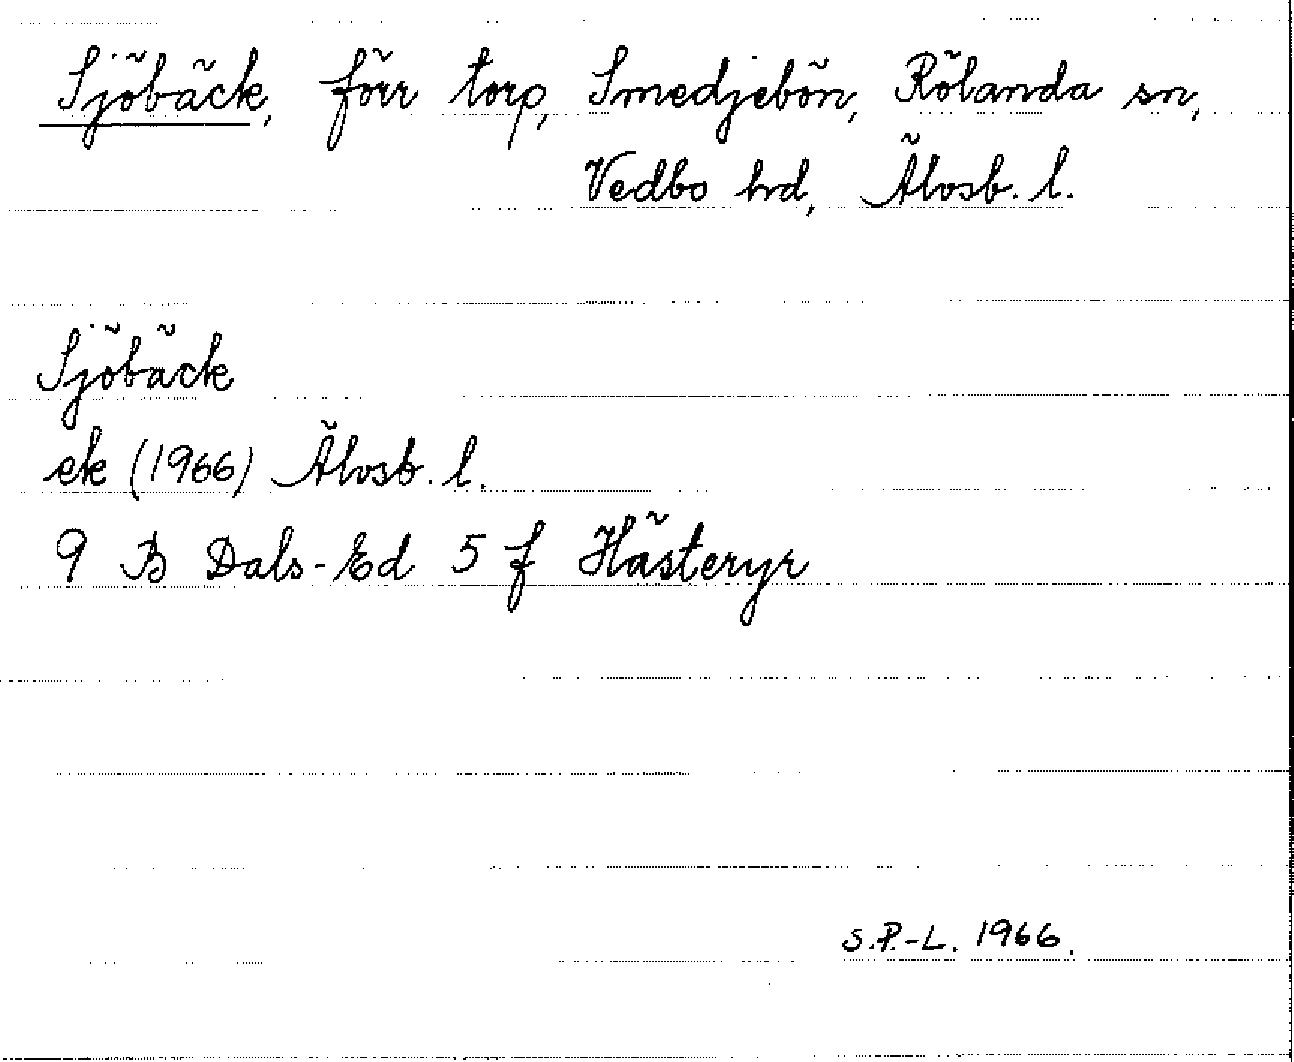 Sjöbäck, förr torp, Smedjebön, Rölanda sn,
Vedbo hd, Älvsb. l.
Sjöbäck
ek (1966) Älvsb. l.
9 B Dals-Ed 5 f Hästeryr
S.P.-L. 1966.